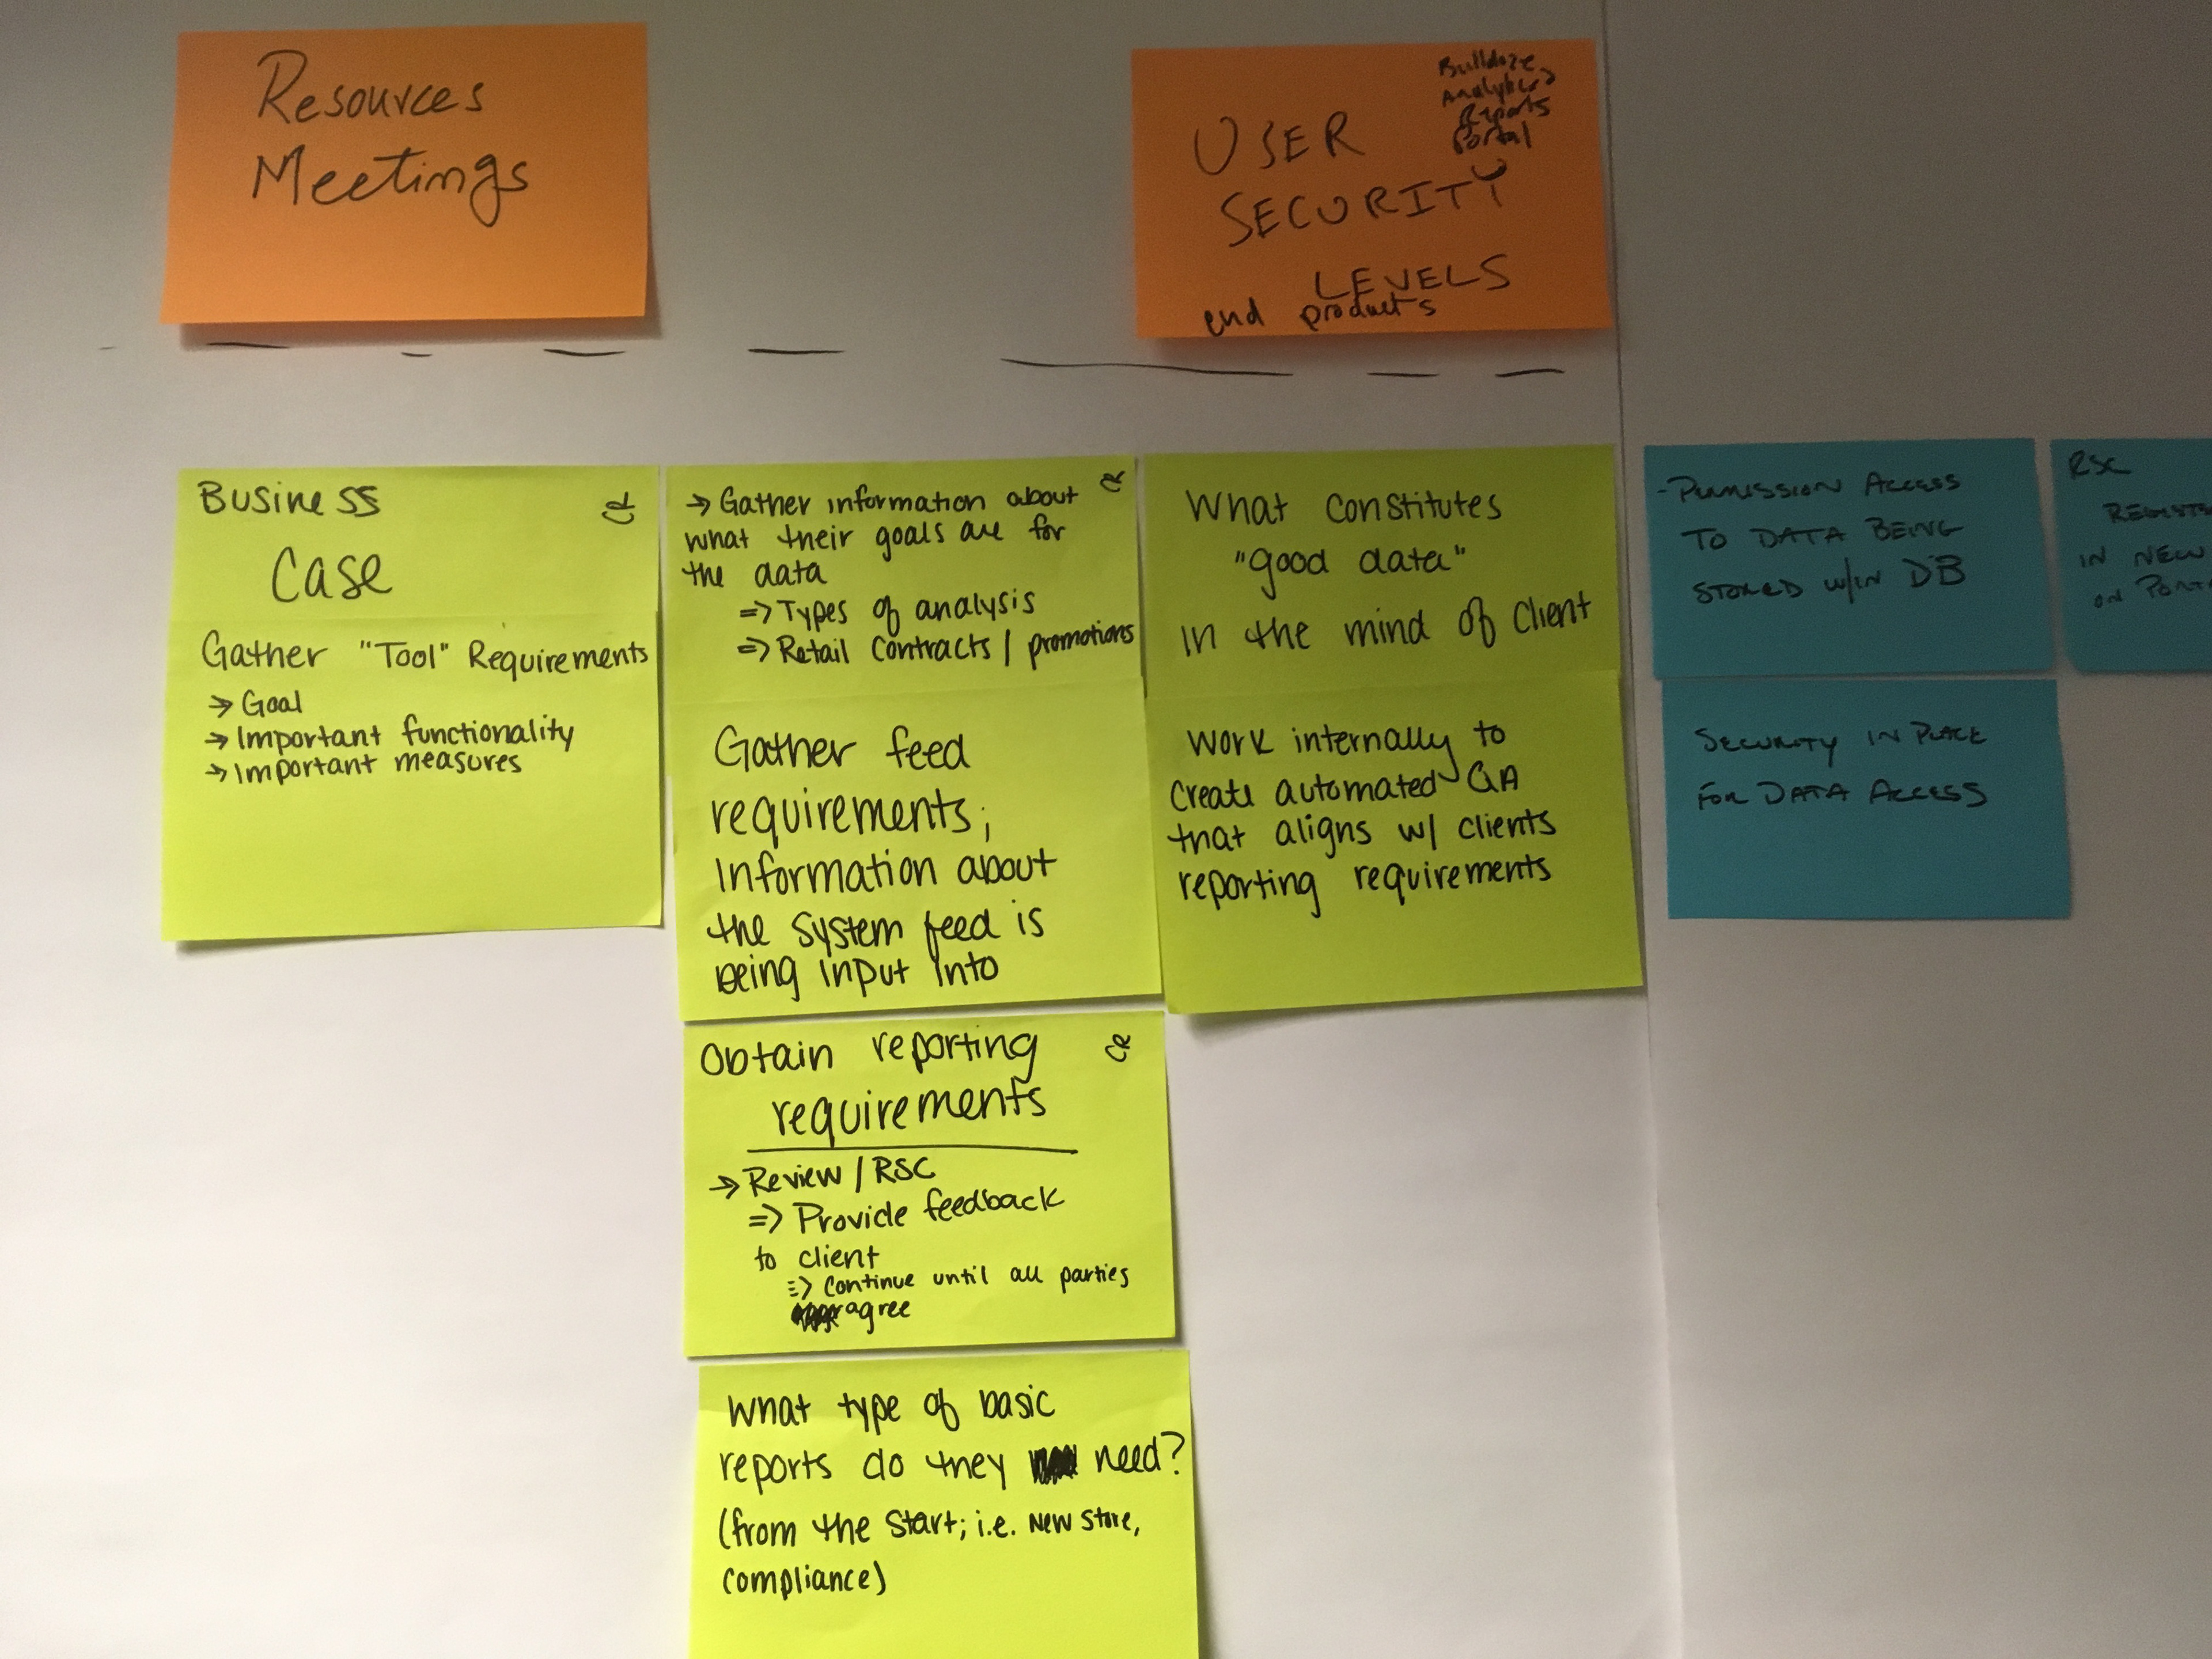 Resources
Meetings
USER
SECURITY
LEVELS
end products
Bulldoze
Analytics
Reports
Portal
Business
Case
Gather "Tool" Requirements
→ Goal
→ Important functionality
→ Important measures
→ Gather information about
what their goals are for
the data
⇒ Types of analysis
⇒ Retail Contracts / promotions
Gather feed
requirements;
Information about
the system feed is
being input into
Obtain reporting
requirements
→ Review / RSC
⇒ Provide feedback
to client
⇒ Continue until all parties
agree
What type of basic
reports do they need?
(from the start; i.e. New Store,
compliance)
What constitutes
"good data"
in the mind of client
Work internally to
create automated QA
that aligns w/ clients
reporting requirements
-PERMISSION ACCESS
TO DATA BEING
STORED W/IN DB
SECURITY IN PLACE
FOR DATA ACCESS
RSC
IN NEW
ON